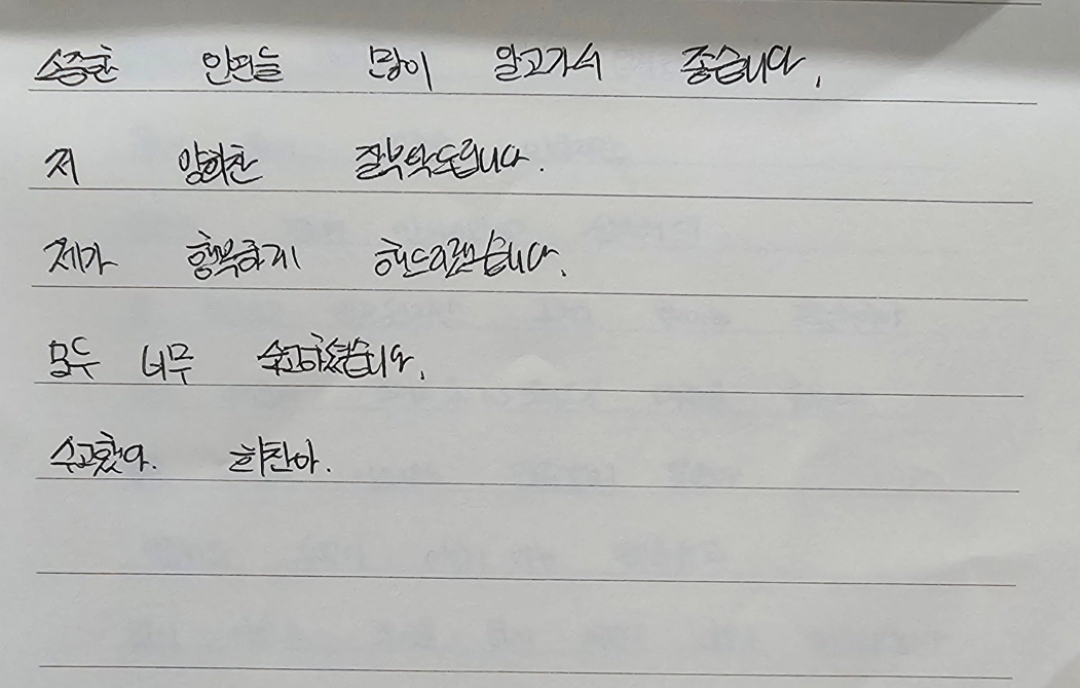 소중한 인연들 많이 알고가서 좋습니다.
저 양희찬 잘부탁드립니다.
제가 행복하게 해드리겠습니다.
모두 너무 수고하셨습니다.
수고했어. 희찬아.